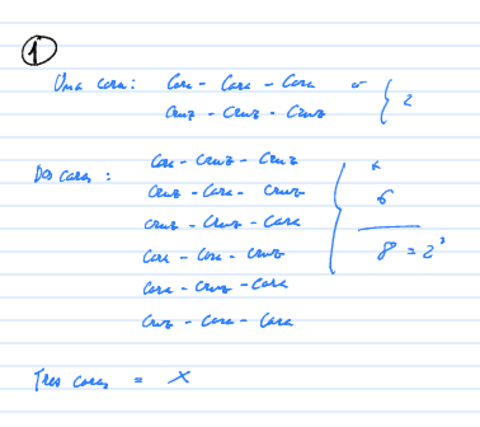 1
Una cara: Cara - Cara - Cara o {
Cruz - Cruz - Cruz 2
Dos caras: Cara - Cruz - Cruz +
Cruz - Cara - Cruz 6
Cruz - Cruz - Cara
Cara - Cara - Cruz 8 = 2³
Cara - Cruz - Cara
Cruz - Cara - Cara
Tres caras = X